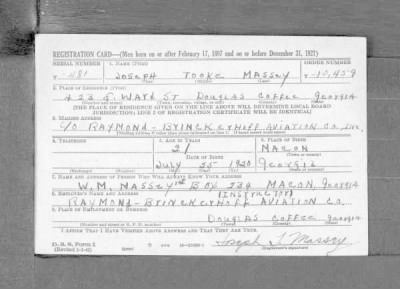 REGISTRATION CARD—(Men born on or after February 17, 1897 and on or before December 31, 1921)
SERIAL NUMBER 1. NAME (Print) ORDER NUMBER
T- 481 JOSEPH TOOKE MASSEY T-10,459
2. PLACE OF RESIDENCE (Print)
423 S. WARD ST DOUGLAS COFFEE GEORGIA
(Number and street) (Town, township, village, or city) (County) (State)
[THE PLACE OF RESIDENCE GIVEN ON THE LINE ABOVE WILL DETERMINE LOCAL BOARD
JURISDICTION; LINE 2 OF REGISTRATION CERTIFICATE WILL BE IDENTICAL]
3. MAILING ADDRESS
C/O RAYMOND-BRINCKERHOFF AVIATION CO., INC.
4. TELEPHONE 5. AGE IN YEARS 6. PLACE OF BIRTH
21 MACON
DATE OF BIRTH (Town or county)
JULY 25 1920 GEORGIA
(Mo.) (Day) (Yr.) (State or country)
7. NAME AND ADDRESS OF PERSON WHO WILL ALWAYS KNOW YOUR ADDRESS
W. M. MASSEY BOX 234 MACON, GEORGIA
8. EMPLOYER'S NAME AND ADDRESS (INSTRUCTOR)
RAYMOND-BRINCKERHOFF AVIATION CO.
9. PLACE OF EMPLOYMENT OR BUSINESS
DOUGLAS COFFEE GEORGIA
(Number and street or R. F. D. number) (Town) (County) (State)
I AFFIRM THAT I HAVE VERIFIED ABOVE ANSWERS AND THAT THEY ARE TRUE.
D. S. S. Form 1 Joseph T. Massey
(Revised 1-1-42) (Registrant's signature)